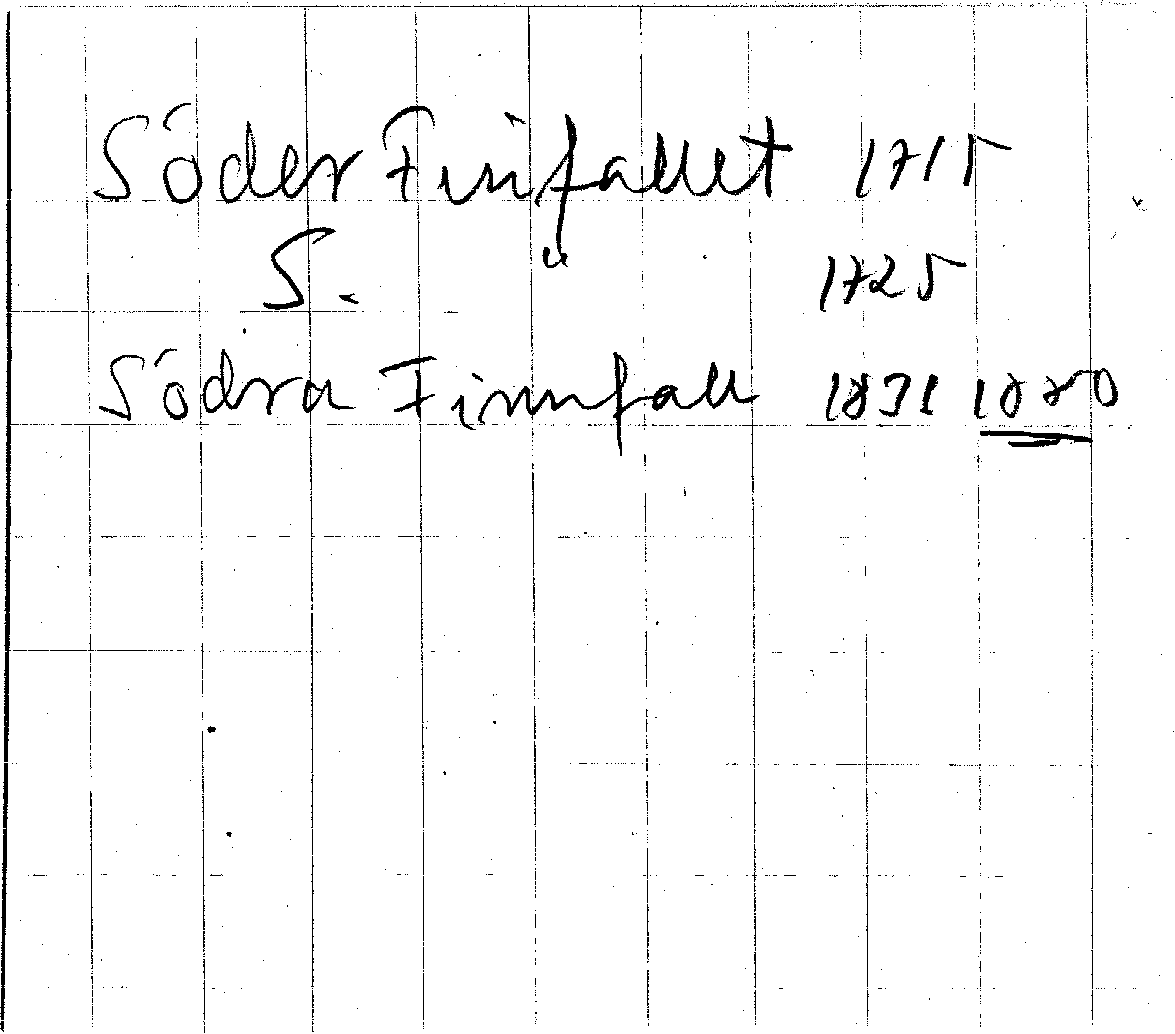 Söder Finfallet 1715
S. " 1725
Södra Finnfall 1831 1880